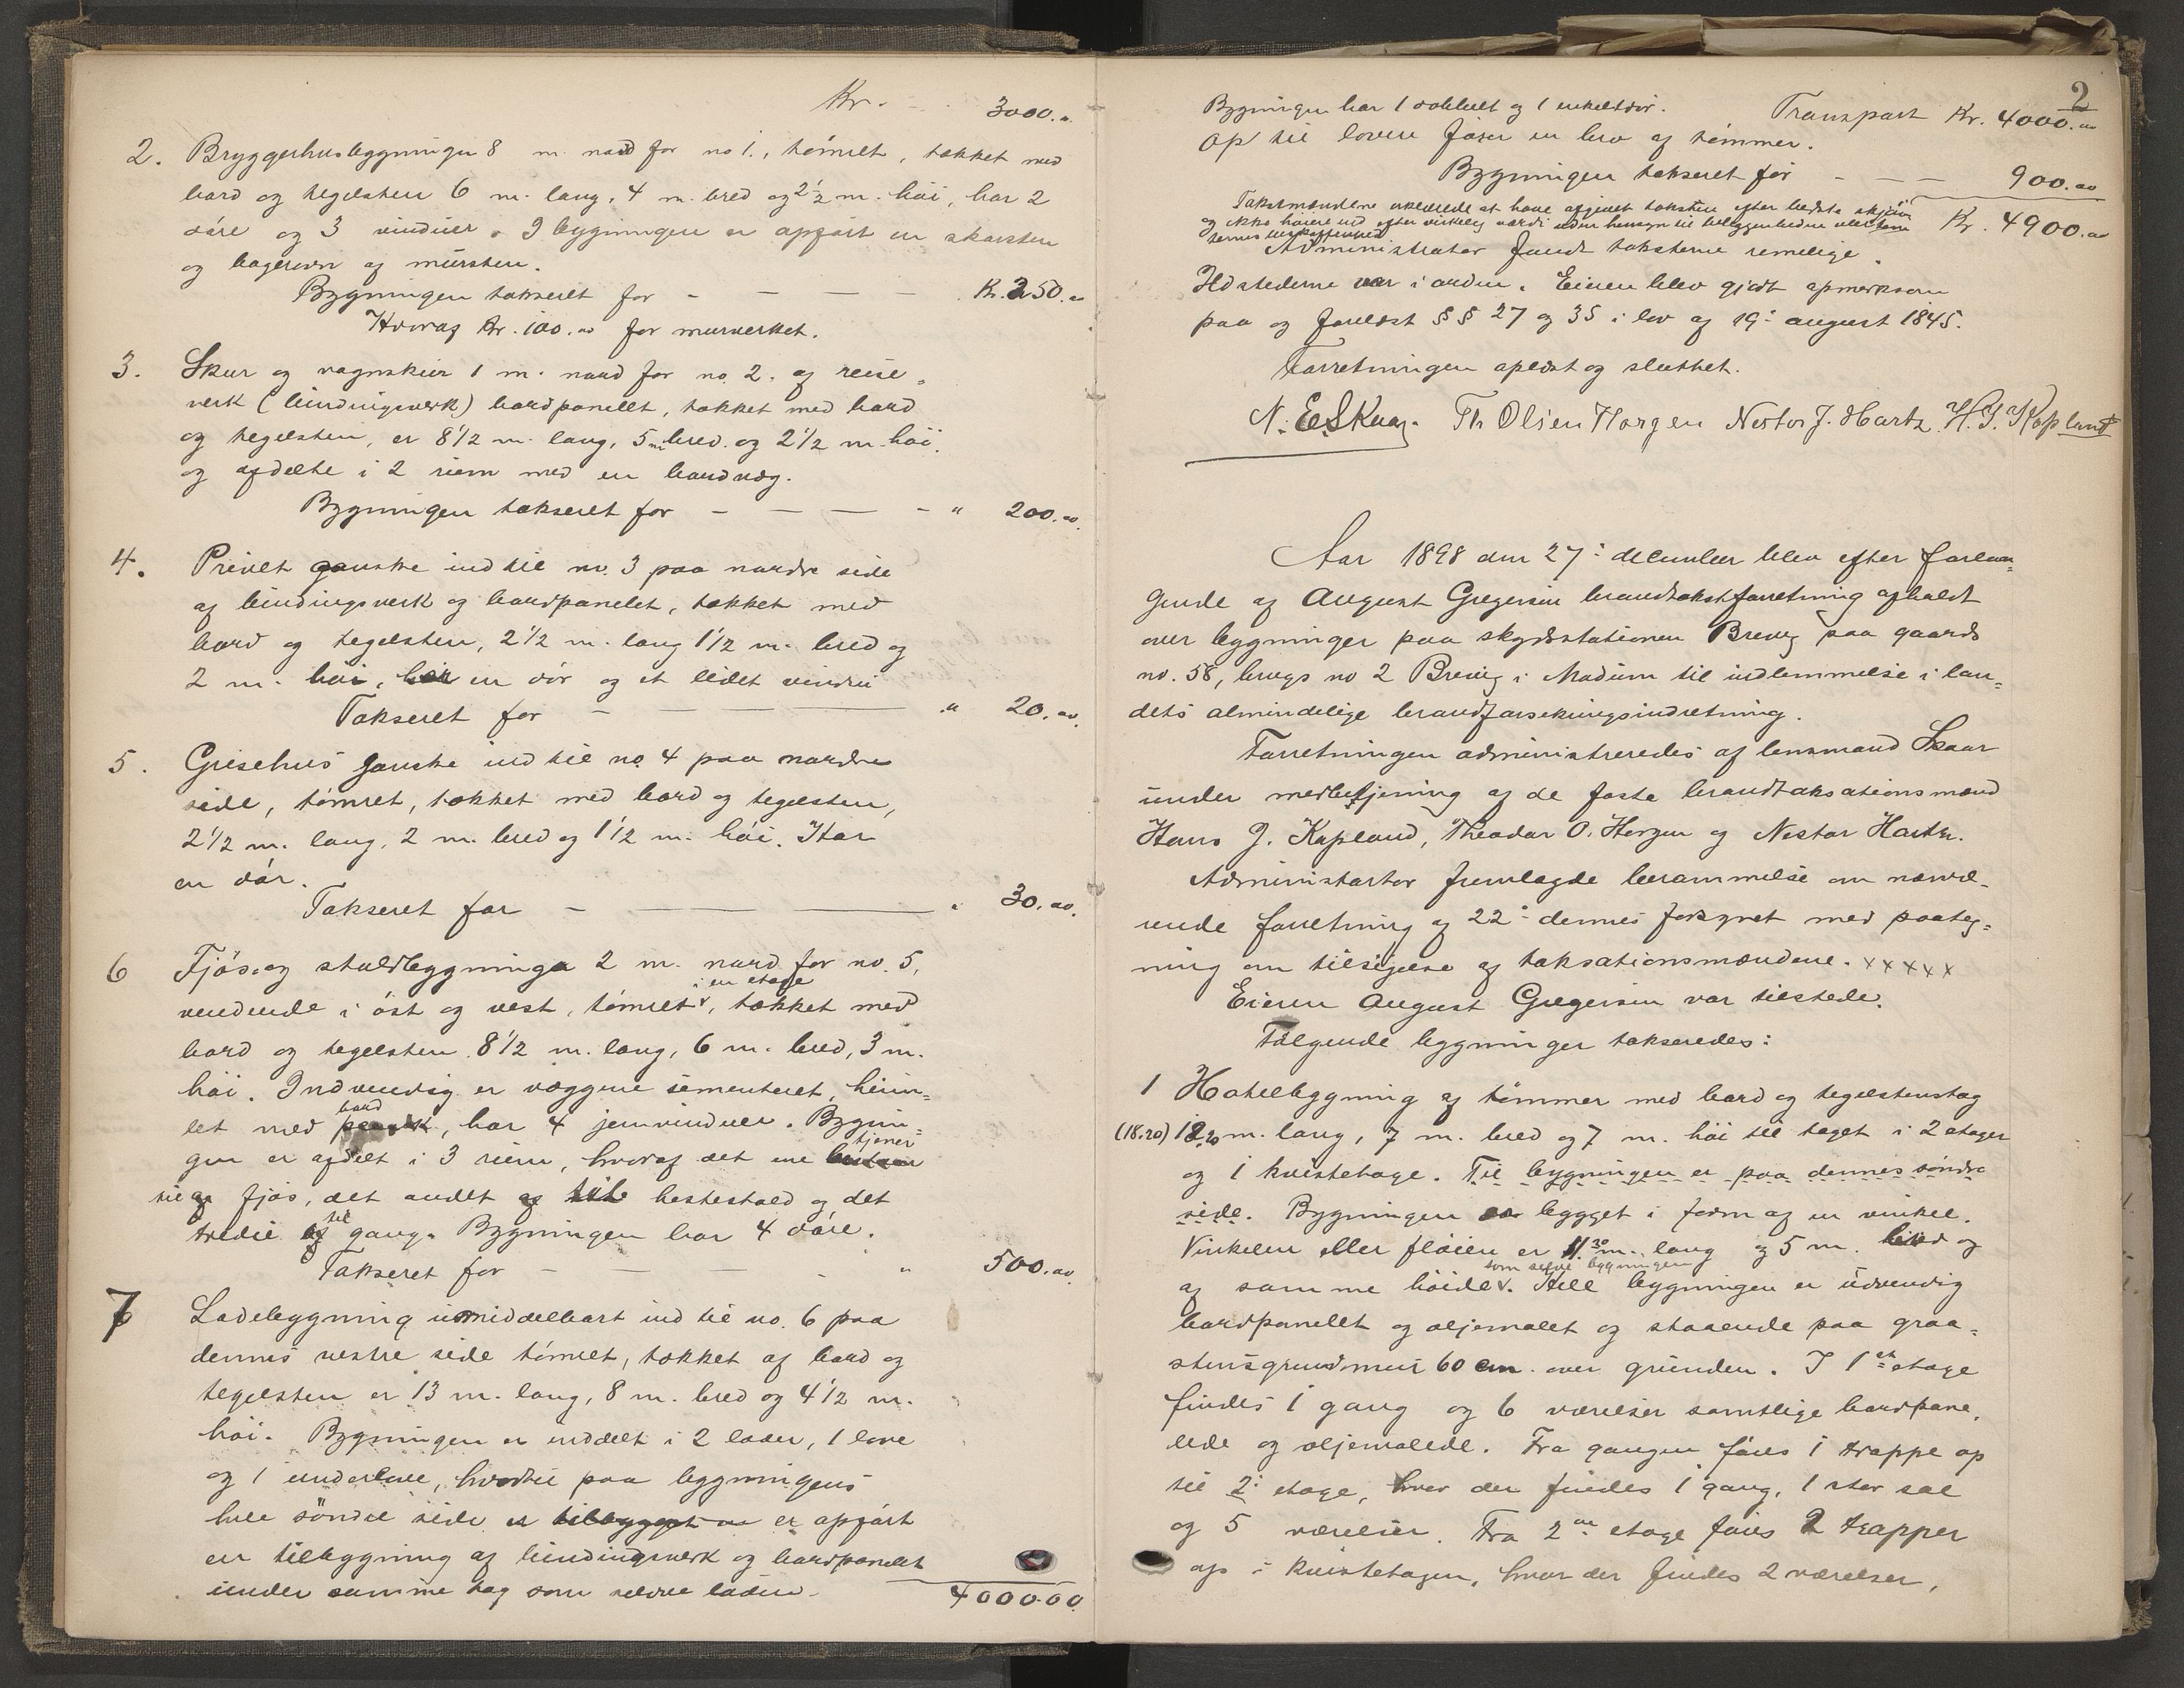 Kr. 3000.00
2. Bryggerhusbygningen 8 m. nord for no 1., tømret, tækket med
bord og teglsten 6 m. lang, 4 m. bred og 2 1/2 m. høi, har 2
døre og 3 vinduer. I bygningen er opført en skorsten
og bagerovn af mursten.
Bygningen takseret for - — — — Kr. 250.00
Hvoraf Kr. 100.00 for murverket.
3. Skur og vognskur 1 m. nord for no. 2. af reise-
verk (bindingsverk) bordpanelt, tækket med bord
og teglsten, er 8 1/2 m. lang, 5 m bred og 2 1/2 m høi.
og afdelte i 2 rum med en bordvæg.
Bygningen takseret for - — — - " 200.00.
4. Privet ganske ind til no. 3 paa nordre side
af bindingsverk og bordpanelet, tækket med
bord og teglsten, 2 1/2 m. lang 1 1/2 m. bred og
2 m. høi, har en dør og et lidet vindu
Takseret for - — — " 20.00.
5. Grisehus ganske ind til no. 4 paa nordre
side, tømret, tækket med bord og teglsten,
2 1/2 m. lang, 2 m. bred og 1 1/2 m. høi. Har
en dør.
Takseret for - — — " 30.00.
6 Fjøs og staldbygninga 2 m. nord for no. 5,
i en etage
vendende i øst og vest, tømret, tækket med
bord og teglsten 8 1/2 m. lang, 6 m. bred, 3 m.
høi. Indvendig er væggene sementeret, him=
bord
let med , har 4 jernvinduer. Bygnin=
tjener
gen er afdelt i 3 rum, hvoraf det ene
til fjøs, det andet til hestestald og det
til
tredie af gang. Bygningen har 4 døre.
Takseret for - — - " 500.00
7 Ladebygning umiddelbart ind til no. 6 paa
dennes vestre side tømret, tækket af bord og
teglsten er 13 m. lang, 8 m. bred og 4 1/2 m.
høi. Bygningen er inddelt i 2 lader, 1 love
og 1 underlove, hvortil paa bygningens
hele søndre side er tilbygget en er opført
en tilbygning af bindingsverk og bordpanelet
under samme tag som selve laden. 4000.00.
2
Bygningen har 1 dobbelt og 1 enkeltdør. Transport Kr. 4000.00
Op til loven fører en bro af tømmer.
Bygningen takseret for - — — 900.00
Takstmændene erklærede at have afgivet taksten efter bedste skjøn
og ikke høiere end efter virkelig værdi uden hensyn til beliggenheden eller tom-
ternes beskaffenhed Kr. 4900.00
Administrator fandt taksterne rimelige.
Ildstederne var i orden. Eieren blev gjort opmerksom
paa og forelæst §§ 27 og 35 i lov af 19: august 1845.
Forretningen oplæst og sluttet.
N. E. Skaar. Th Olsen Horgen Nestor J. Hartz. H. J. Kopland
Aar 1898 den 27: december blev efter forlan=
gende af August Gregersen brandtakstforretning afholdt
over bygninger paa skydsstationen Brevig paa gaards
no. 58, brugs no 2 Brevig i Modum til indlemmelse i lan=
dets almindelige brandforsikringsindretning.
Forretningen administreredes af lensmand Skaar
under medbetjening af de faste brandtaksationsmænd
Hans J. Kopland, Theodor O. Horgen og Nestor Hartz.
Administartor fremlagde berammelse om nærvæ-
rende forretning af 22: dennes forsynet med paateg=
ning om tilsigelse af taksationsmændene. x x x x x
Eieren August Gregersen var tilstede.
Følgende bygninger takseredes:
1 Hotelbygning af tømmer med bord og teglstenstag
(18.20) 18.20 m. lang, 7 m. bred og 7 m. høi til taget i 2 etager
og 1 kvistetage. Til bygningen er paa dennes søndre
side. Bygningen er bygget i form af en vinkel.
Vinkelen eller fløien er 11.30 m. lang og 5 m. bred og
som selve bygningen
af samme høide. Hele bygningen er udvendig
bordpanelt og oljemalet og staaende paa graa=
stensgrundmur 60 cm. over grunden. I 1ste etage
findes 1 gang og 6 værelser samtlige bordpane-
lede og oljemalede. Fra gangen føres 1 trappe op
til 2: etage, hvor der findes 1 gang, 1 stor sal
og 5 værelser. Fra 2den etage føres 2 trapper
op i kvistetagen, hvor der findes 2 værelser,